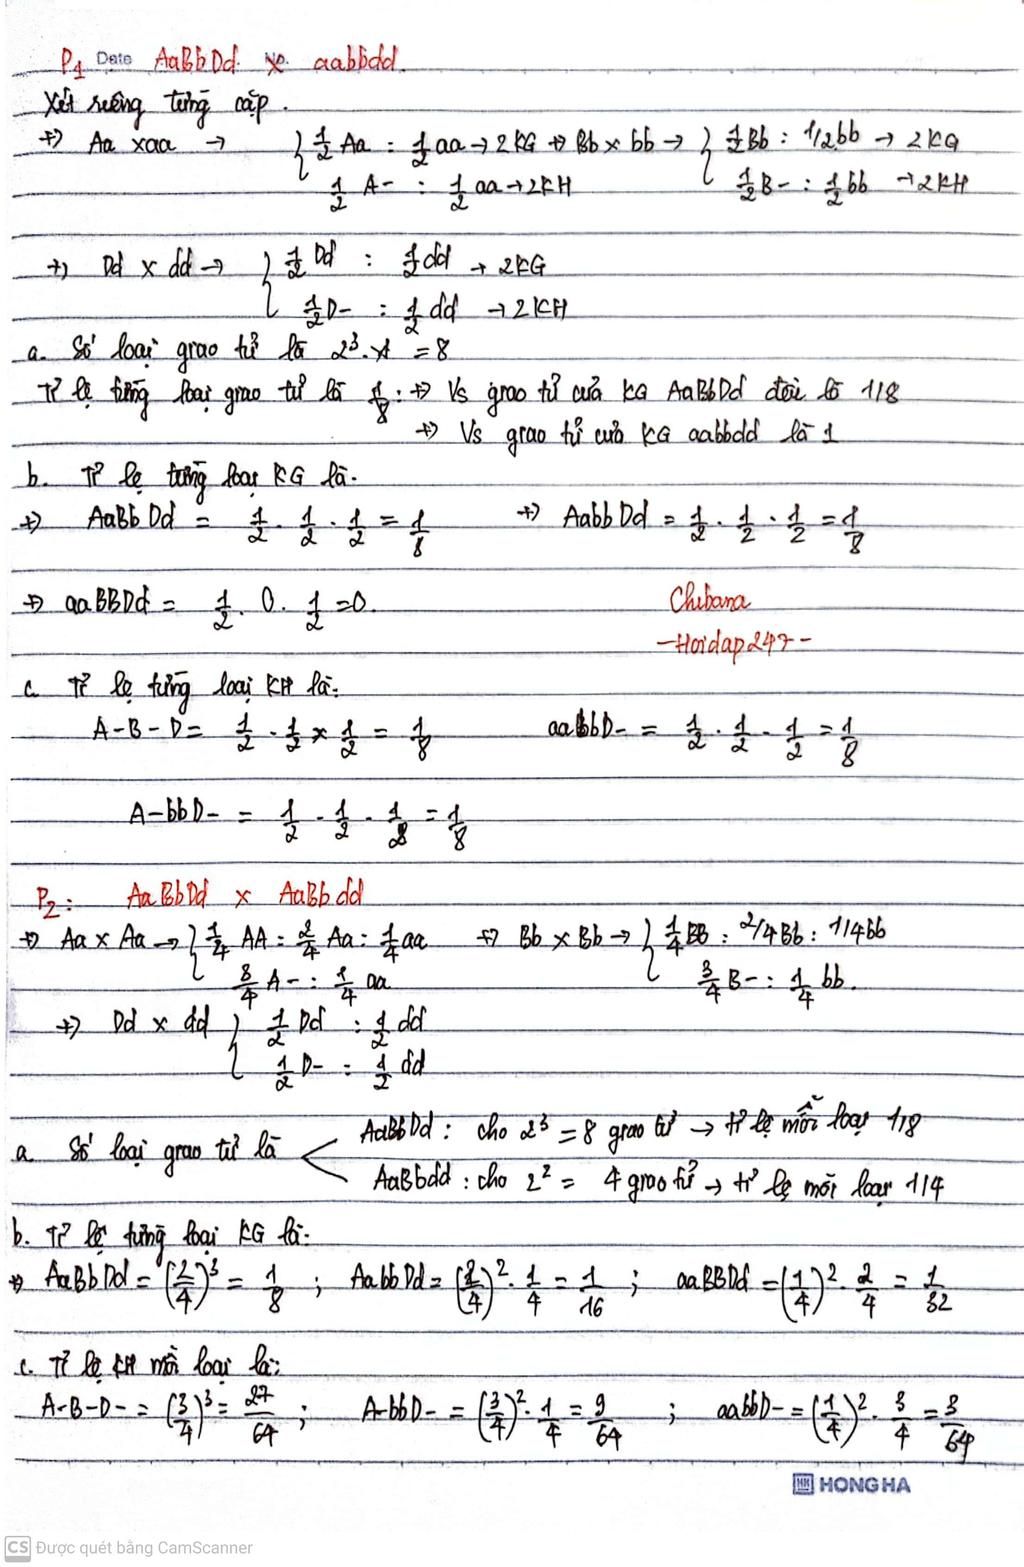 P1 Date AaBbDd No. x aabbdd.
Xét riêng từng cặp.
+) Aa xaa → { 1/2 Aa : 1/2 aa → 2KG +) Bb x bb → { 1/2 Bb : 1/2bb → 2KG
1/2 A- : 1/2 aa → 2KH 1/2 B- : 1/2 bb → 2KH
+) Dd x dd → { 1/2 Dd : 1/2 dd → 2KG
1/2 D- : 1/2 dd → 2KH
a. Số loại giao tử là 2^3.1 = 8
Tỉ lệ từng loại giao tử là 1/8 : +) Vs giao tử của KG AaBbDd đều là 1/8
+) Vs giao tử của KG aabbdd là 1
b. Tỉ lệ từng loại KG là.
+) AaBb Dd = 1/2 . 1/2 . 1/2 = 1/8 +) Aabb Dd = 1/2 . 1/2 . 1/2 = 1/8
+) aaBBDd = 1/2 . 0. 1/2 =0.
Chibana
-Hoidap247-
c. Tỉ lệ từng loại KH là:
A-B-D= 1/2 . 1/2 x 1/2 = 1/8 aabbD- = 1/2 . 1/2 . 1/2 = 1/8
A-bbD- = 1/2 . 1/2 . 1/2 = 1/8
P2: AaBbDd x AaBbdd
+) Aa x Aa → { 1/4 AA : 2/4 Aa : 1/4 aa +) Bb x Bb → { 1/4 BB : 2/4Bb : 1/4bb
3/4 A- : 1/4 aa 3/4 B- : 1/4 bb.
+) Dd x dd { 1/2 Dd : 1/2 dd
1/2 D- : 1/2 dd
a Số loại giao tử là < AaBbDd : cho 2^3 = 8 giao tử → tỉ lệ mỗi loại 1/8
AaBbdd : cho 2^2 = 4 giao tử → tỉ lệ mỗi loại 1/4
b. Tỉ lệ từng loại KG là:
+) AaBbDd = (2/4)^3 = 1/8 ; AabbDd = (2/4)^2 . 1/4 = 1/16 ; aaBBDd = (1/4)^2 . 2/4 = 1/32
c. Tỉ lệ KH mỗi loại là:
A-B-D- = (3/4)^3 = 27/64 ; A-bbD- = (3/4)^2 . 1/4 = 9/64 ; aabbD- = (1/4)^2 . 3/4 = 3/64
HH HONG HA
CS Được quét bằng CamScanner